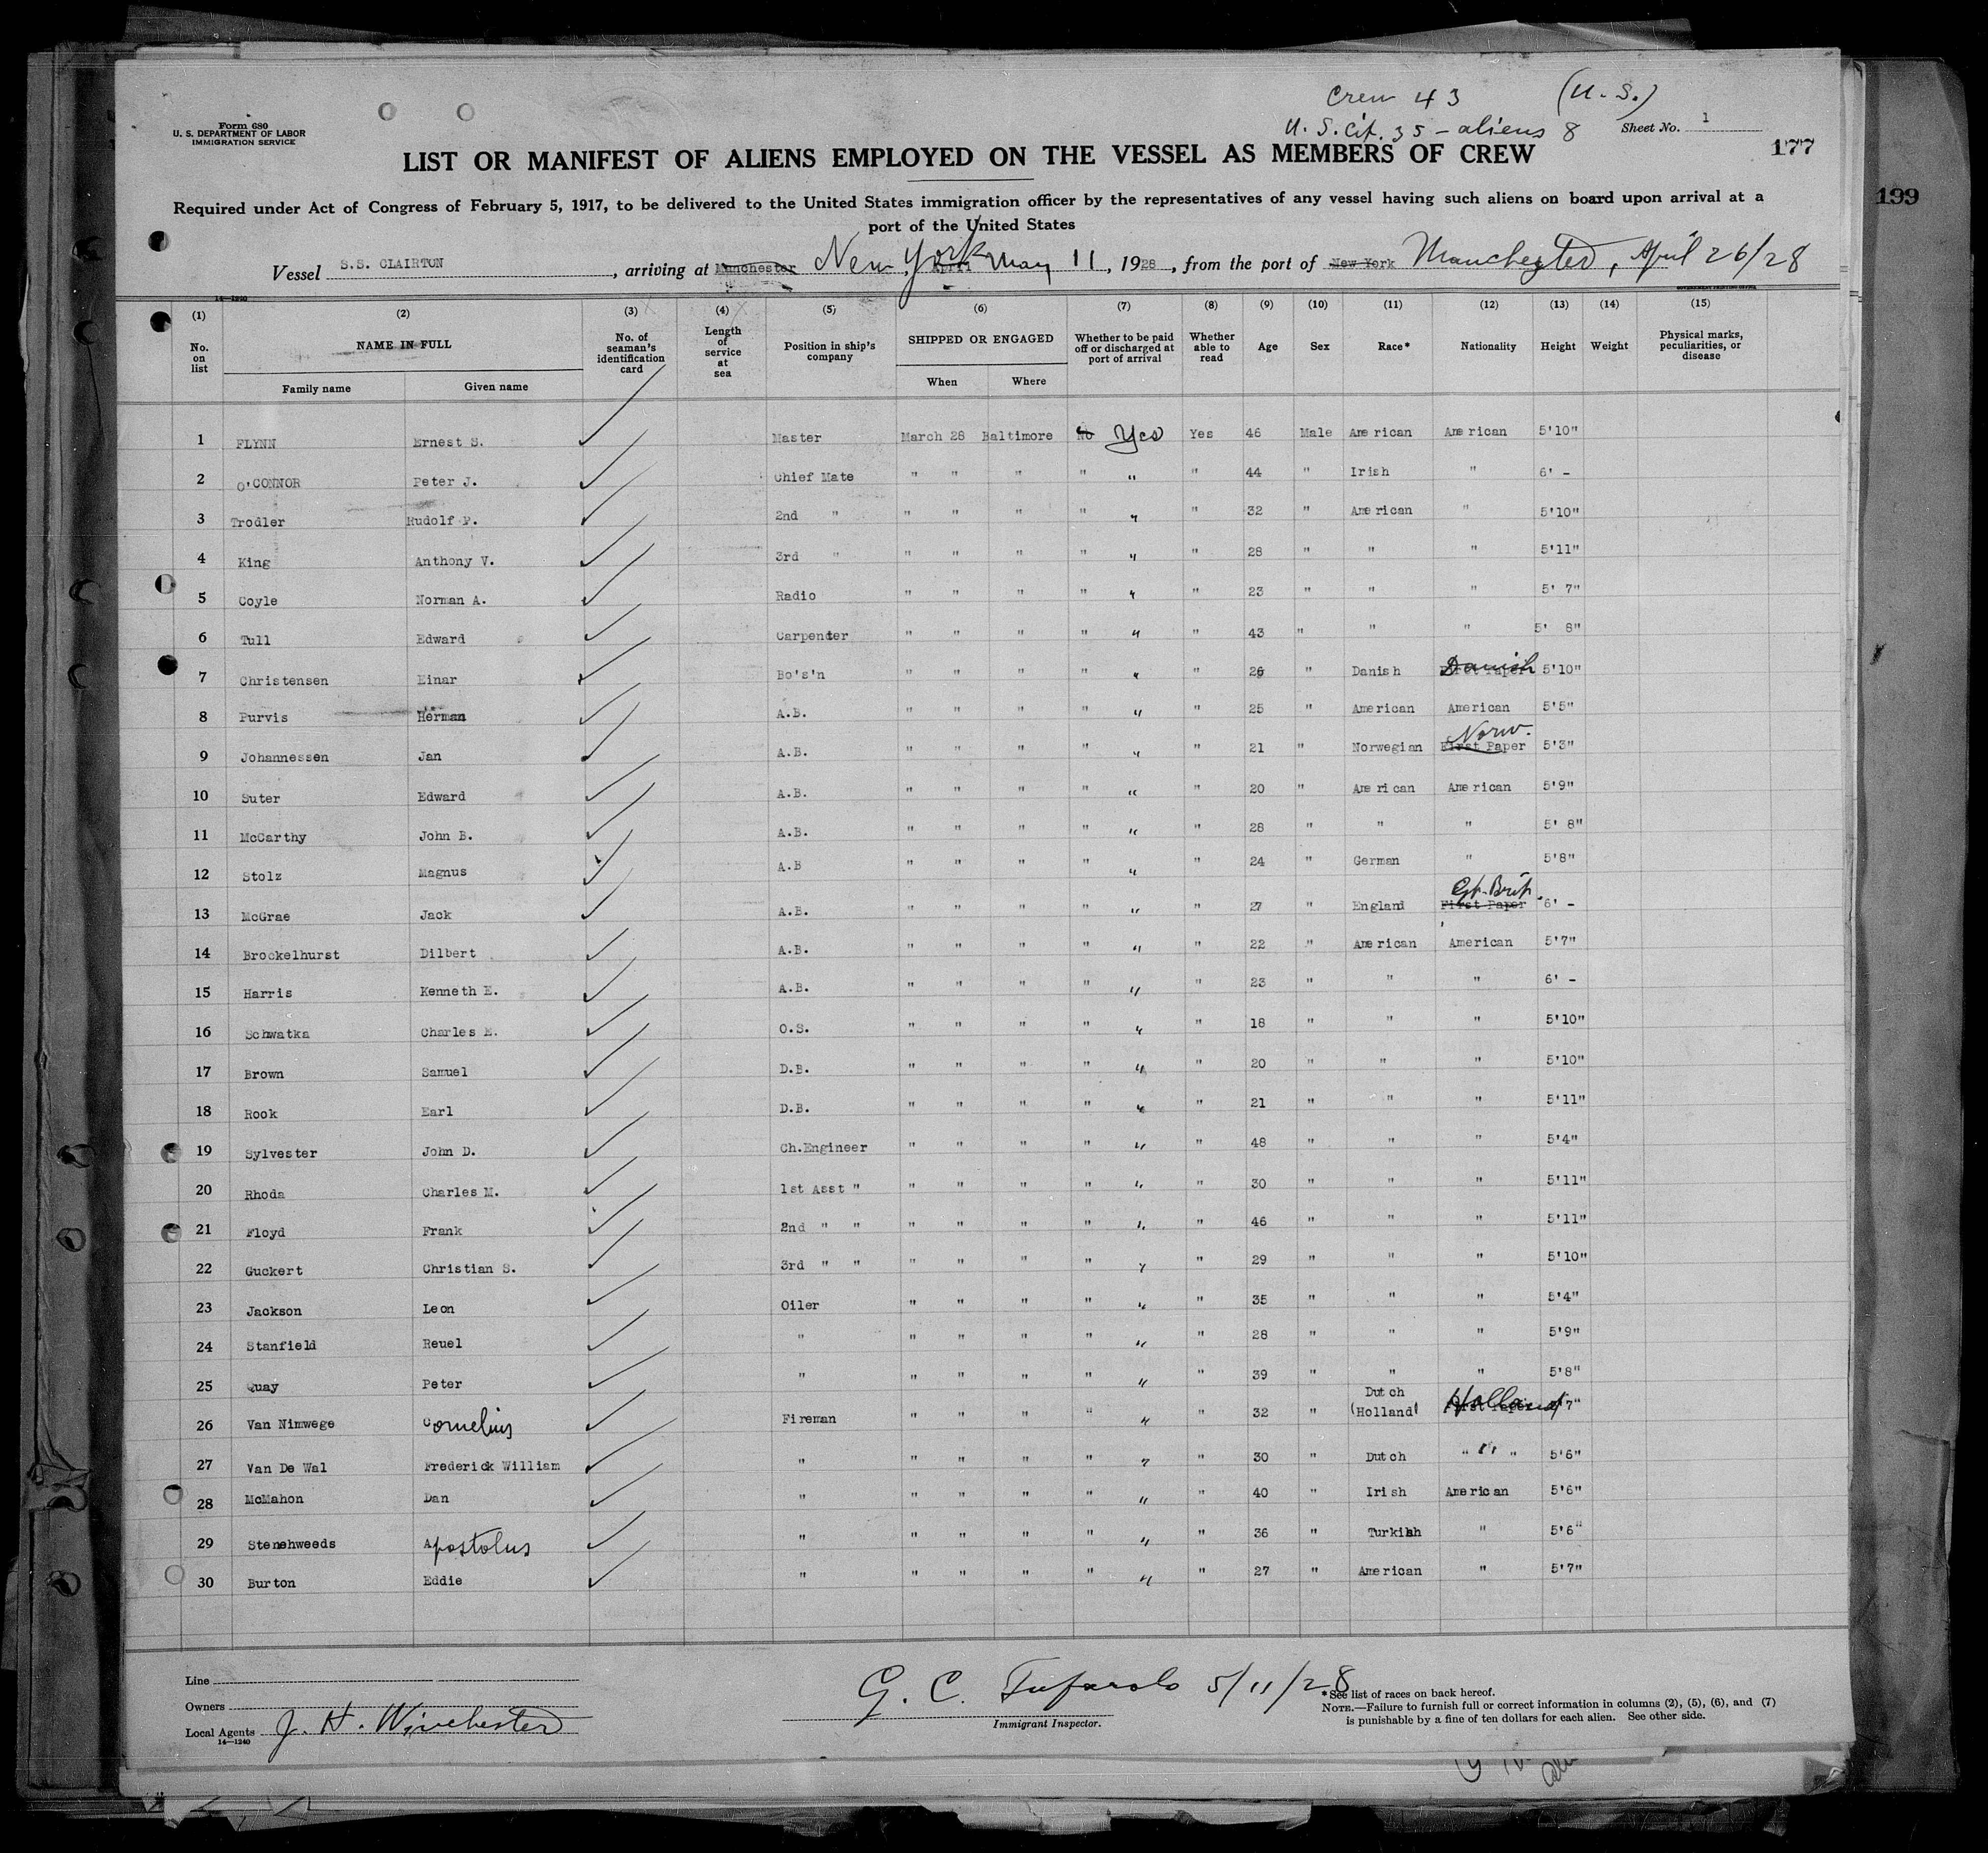 Crew 43 (U.S.)
U.S. Cit. 35 - aliens 8 Sheet No. 1
Form 680
U. S. DEPARTMENT OF LABOR
IMMIGRATION SERVICE
177
199
LIST OR MANIFEST OF ALIENS EMPLOYED ON THE VESSEL AS MEMBERS OF CREW
Required under Act of Congress of February 5, 1917, to be delivered to the United States immigration officer by the representatives of any vessel having such aliens on board upon arrival at a
port of the United States
Vessel S.S. CLAIRTON, arriving at Manchester New York, April May 11, 1928, from the port of New York Manchester, April 26/28
(1) (2) (3) (4) (5) (6) (7) (8) (9) (10) (11) (12) (13) (14) (15)
No. on list NAME IN FULL Family name Given name No. of seaman's identification card Length of service at sea Position in ship's company SHIPPED OR ENGAGED When Where Whether to be paid off or discharged at port of arrival Whether able to read Age Sex Race* Nationality Height Weight Physical marks, peculiarities, or disease
1 FLYNN Ernest S. Master March 28 Baltimore No Yes Yes 46 Male American American 5'10"
2 O'CONNOR Peter J. Chief Mate " " " " " " 44 " Irish " 6' -
3 Trodler Rudolf P. 2nd " " " " " " " 32 " American " 5'10"
4 King Anthony V. 3rd " " " " " " " 28 " " " 5'11"
5 Coyle Norman A. Radio " " " " " " 23 " " " 5' 7"
6 Tull Edward Carpenter " " " " " " 43 " " " 5' 8"
7 Christensen Einar Bo's'n " " " " " " 26 " Danish First Paper Danish 5'10"
8 Purvis Herman A.B. " " " " " " 25 " American American 5'5"
9 Johannessen Jan A.B. " " " " " " 21 " Norwegian First Paper Norw. 5'3"
10 Suter Edward A.B. " " " " " " 20 " American American 5'9"
11 McCarthy John B. A.B. " " " " " " 28 " " " 5' 8"
12 Stolz Magnus A.B " " " " " " 24 " German " 5'8"
13 McGrae Jack A.B. " " " " " " 27 " England First Paper Gt. Brit. 6' -
14 Brockelhurst Dilbert A.B. " " " " " " 22 " American American 5'7"
15 Harris Kenneth E. A.B. " " " " " " 23 " " " 6' -
16 Schwatka Charles E. O.S. " " " " " " 18 " " " 5'10"
17 Brown Samuel D.B. " " " " " " 20 " " " 5'10"
18 Rook Earl D.B. " " " " " " 21 " " " 5'11"
19 Sylvester John D. Ch.Engineer " " " " " " 48 " " " 5'4"
20 Rhoda Charles M. 1st Asst " " " " " " " 30 " " " 5'11"
21 Floyd Frank 2nd " " " " " " " " 46 " " " 5'11"
22 Guckert Christian S. 3rd " " " " " " " " 29 " " " 5'10"
23 Jackson Leon Oiler " " " " " " 35 " " " 5'4"
24 Stanfield Reuel " " " " " " " 28 " " " 5'9"
25 Quay Peter " " " " " " " 39 " " " 5'8"
26 Van Nimwege Cornelius Fireman " " " " " " 32 " Dutch (Holland) First Paper Holland 5'7"
27 Van De Wal Frederick William " " " " " " " 30 " Dutch " " " 5'6"
28 McMahon Dan " " " " " " " 40 " Irish American 5'6"
29 Stenehweeds Apostolus " " " " " " " 36 " Turkish " 5'6"
30 Burton Eddie " " " " " " " 27 " American " 5'7"
Line
Owners
Local Agents J. H. Winchester
14—1240
G. C. Tufarolo 5/11/28
Immigrant Inspector.
*See list of races on back hereof.
NOTE.—Failure to furnish full or correct information in columns (2), (5), (6), and (7)
is punishable by a fine of ten dollars for each alien. See other side.